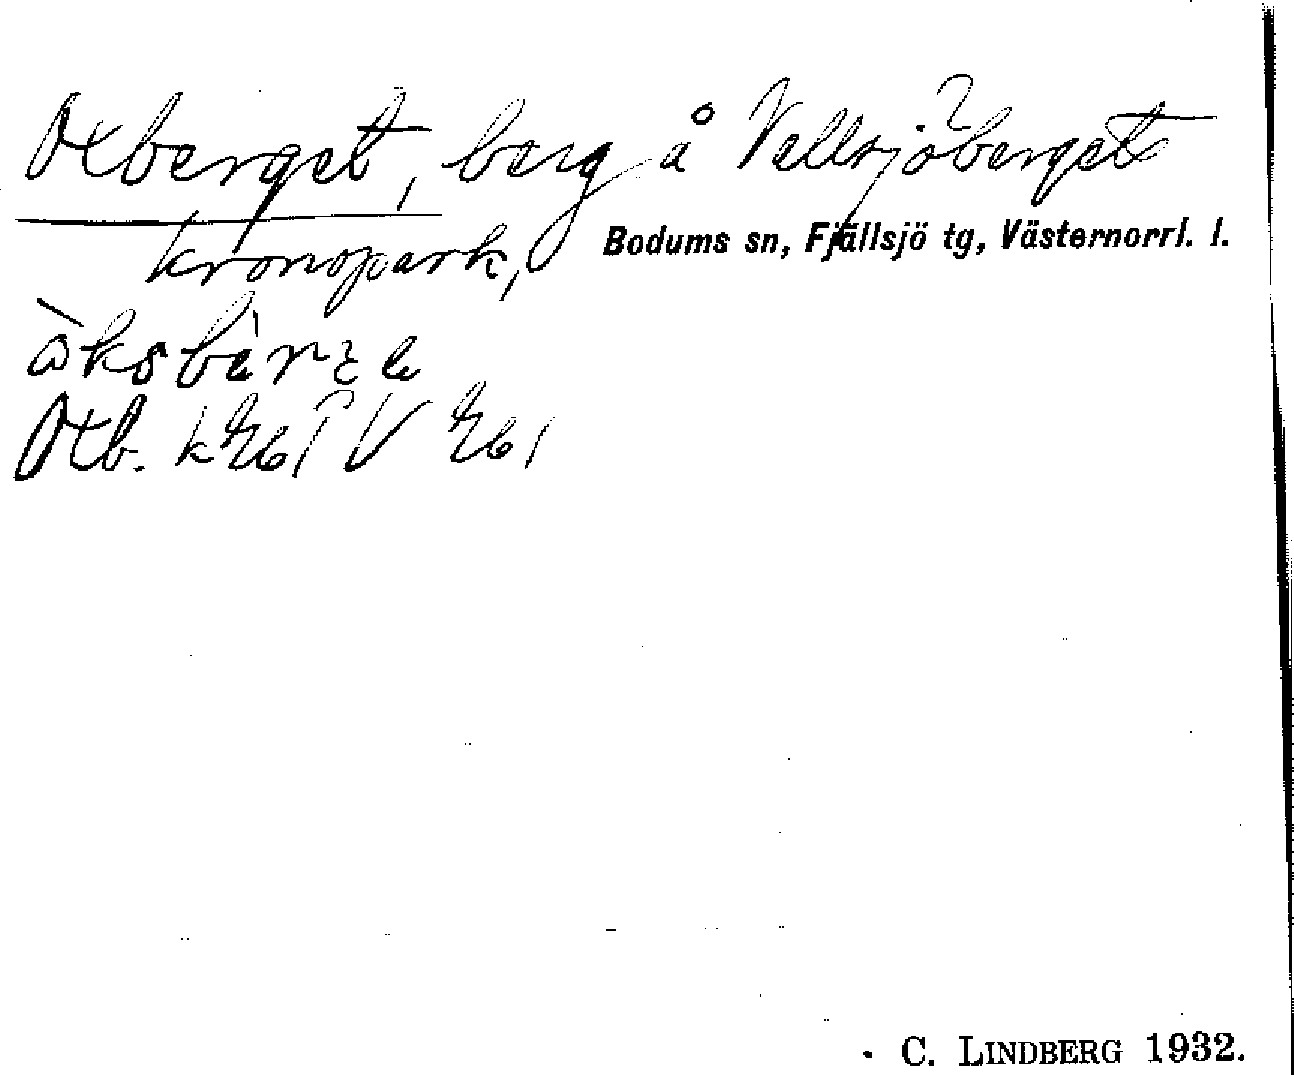 Oxberget, berg å Vallsjöberget
kronopark,
Bodums sn, Fjällsjö tg, Västernorrl. l.
Oxb.
C. LINDBERG 1932.